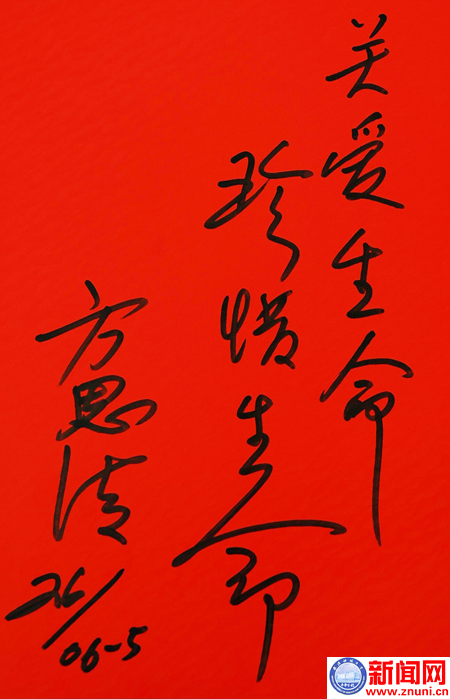 关爱生命
珍惜生命
方思
26/06-5
新闻网
www.znuni.cn